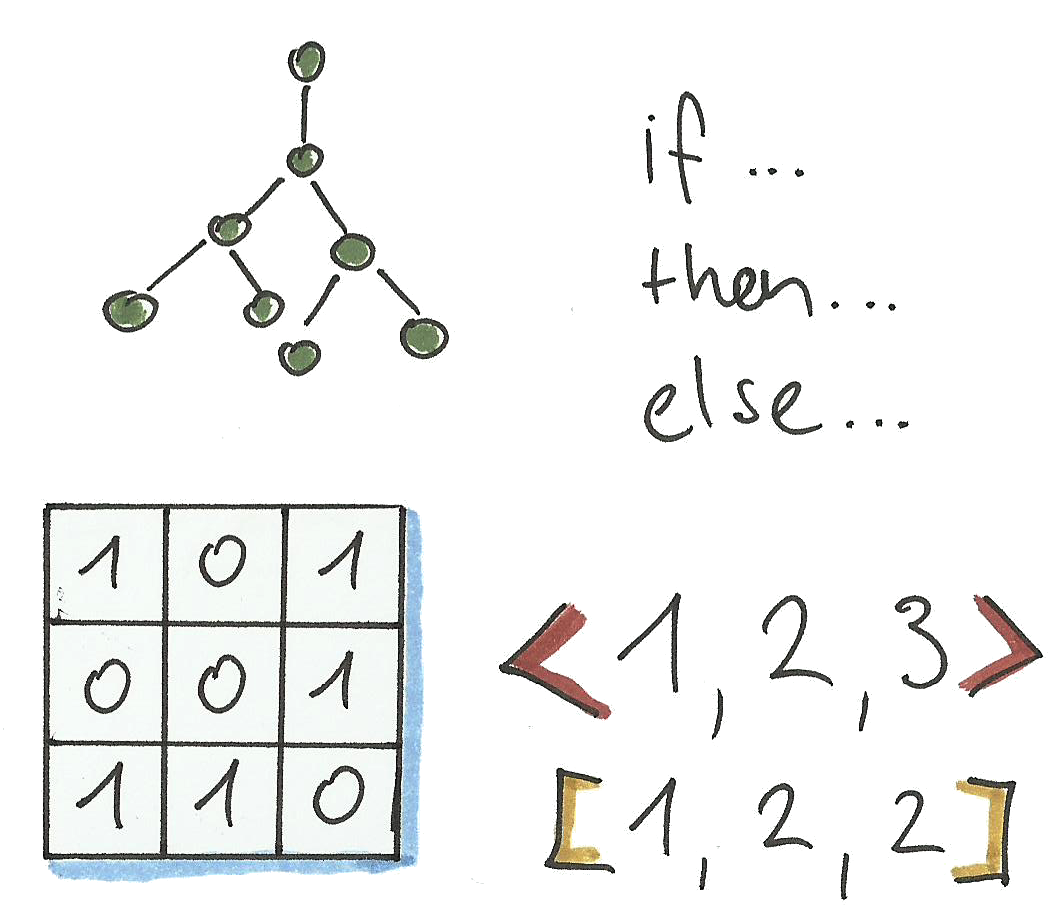 if ...
then...
else...
1 0 1
0 0 1
1 1 0
<1, 2, 3>
[1, 2, 2]